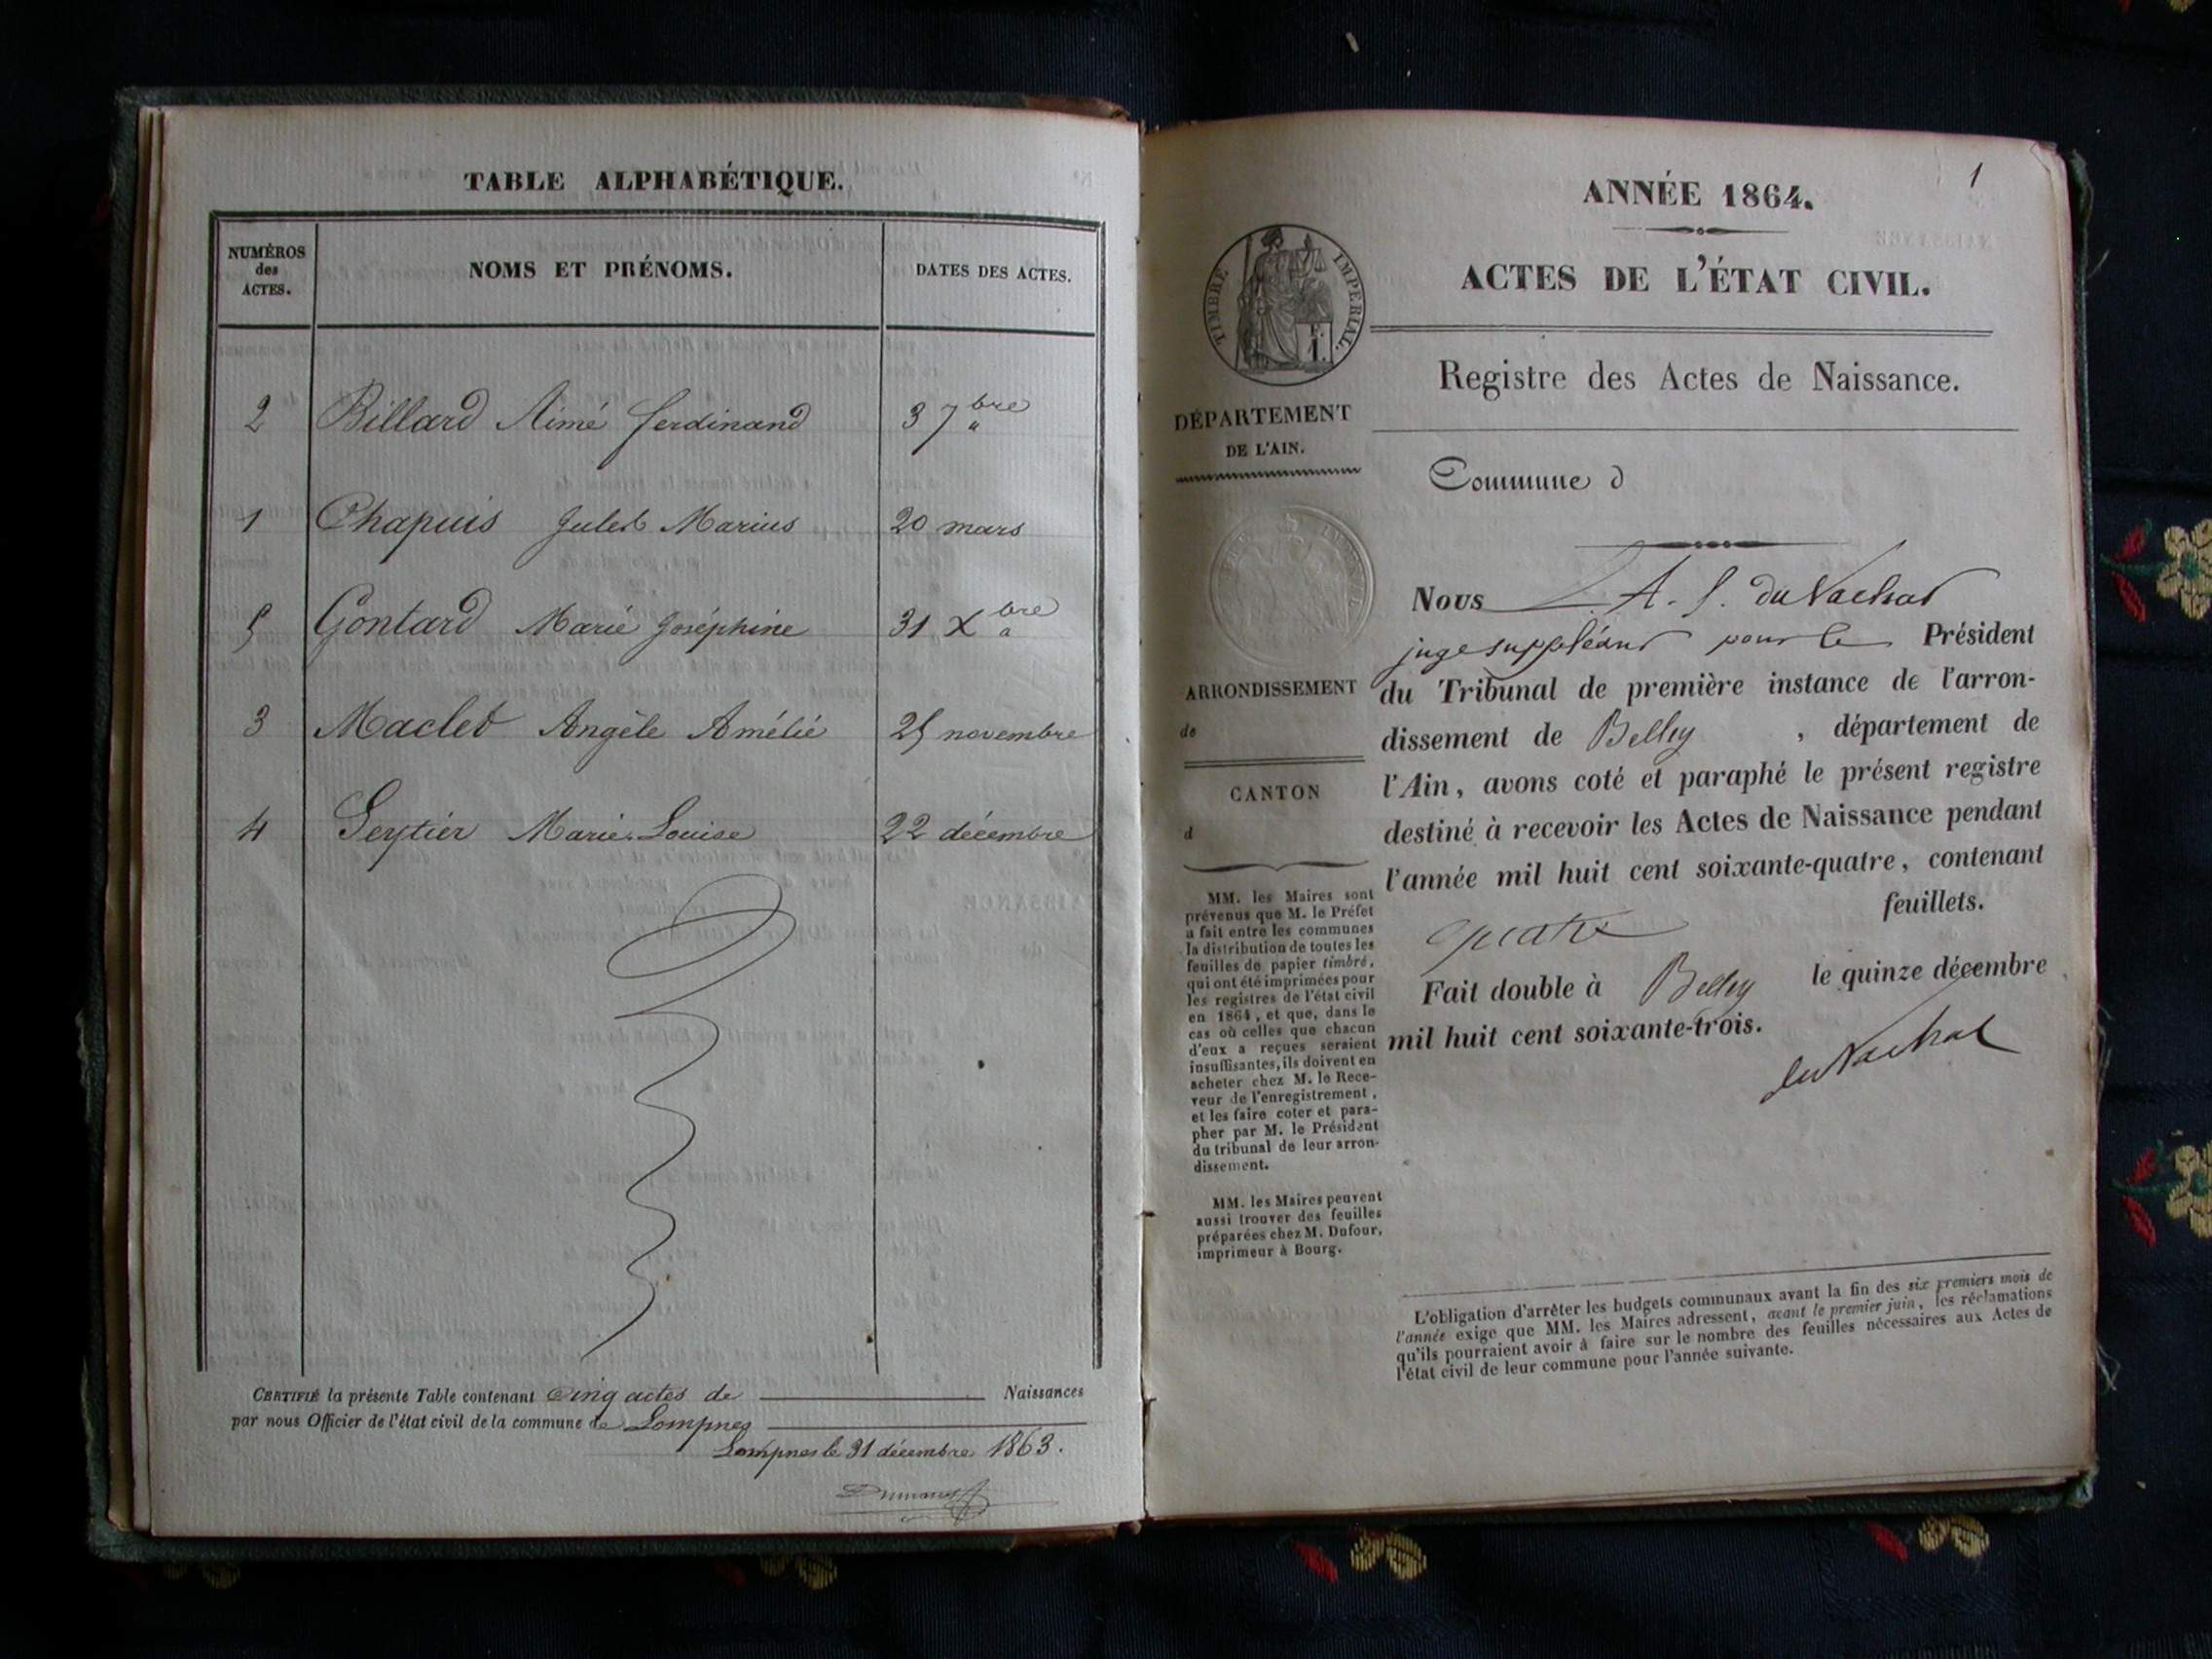 TABLE ALPHABÉTIQUE.
NUMÉROS des ACTES. NOMS ET PRÉNOMS. DATES DES ACTES.
2 Billard Aimé Ferdinand 3 7bre
1 Chapuis Jules Marius 20 mars
5 Gontard Marie Joséphine 31 Xbre
3 Maclet Angèle Amélie 25 novembre
4 Seytier Marie Louise 22 décembre
CERTIFIÉ la présente Table contenant Cinq actes de Naissances
par nous Officier de l'état civil de la commune de Lompnes
Lompnes le 31 décembre 1863.
1
ANNÉE 1864.
ACTES DE L'ÉTAT CIVIL.
Registre des Actes de Naissance.
TIMBRE IMPÉRIAL
F. 1.
DÉPARTEMENT
DE L'AIN.
ARRONDISSEMENT
de
CANTON
d
MM. les Maires sont
prévenus que M. le Préfet
a fait entre les communes
la distribution de toutes les
feuilles de papier timbré,
qui ont été imprimées pour
les registres de l'état civil
en 1864, et que, dans le
cas où celles que chacun
d'eux a reçues seraient
insuffisantes, ils doivent en
acheter chez M. le Rece-
veur de l'enregistrement,
et les faire coter et para-
pher par M. le Président
du tribunal de leur arron-
dissement.
MM. les Maires peuvent
aussi trouver des feuilles
préparées chez M. Dufour,
imprimeur à Bourg.
Commune d
Nous A. du Vachat
juge suppléant pour le Président
du Tribunal de première instance de l'arron-
dissement de Belley , département de
l'Ain, avons coté et paraphé le présent registre
destiné à recevoir les Actes de Naissance pendant
l'année mil huit cent soixante-quatre, contenant
quatre feuillets.
Fait double à Belley le quinze décembre
mil huit cent soixante-trois.
du Vachat
L'obligation d'arrêter les budgets communaux avant la fin des six premiers mois de
l'année exige que MM. les Maires adressent, avant le premier juin, les réclamations
qu'ils pourraient avoir à faire sur le nombre des feuilles nécessaires aux Actes de
l'état civil de leur commune pour l'année suivante.